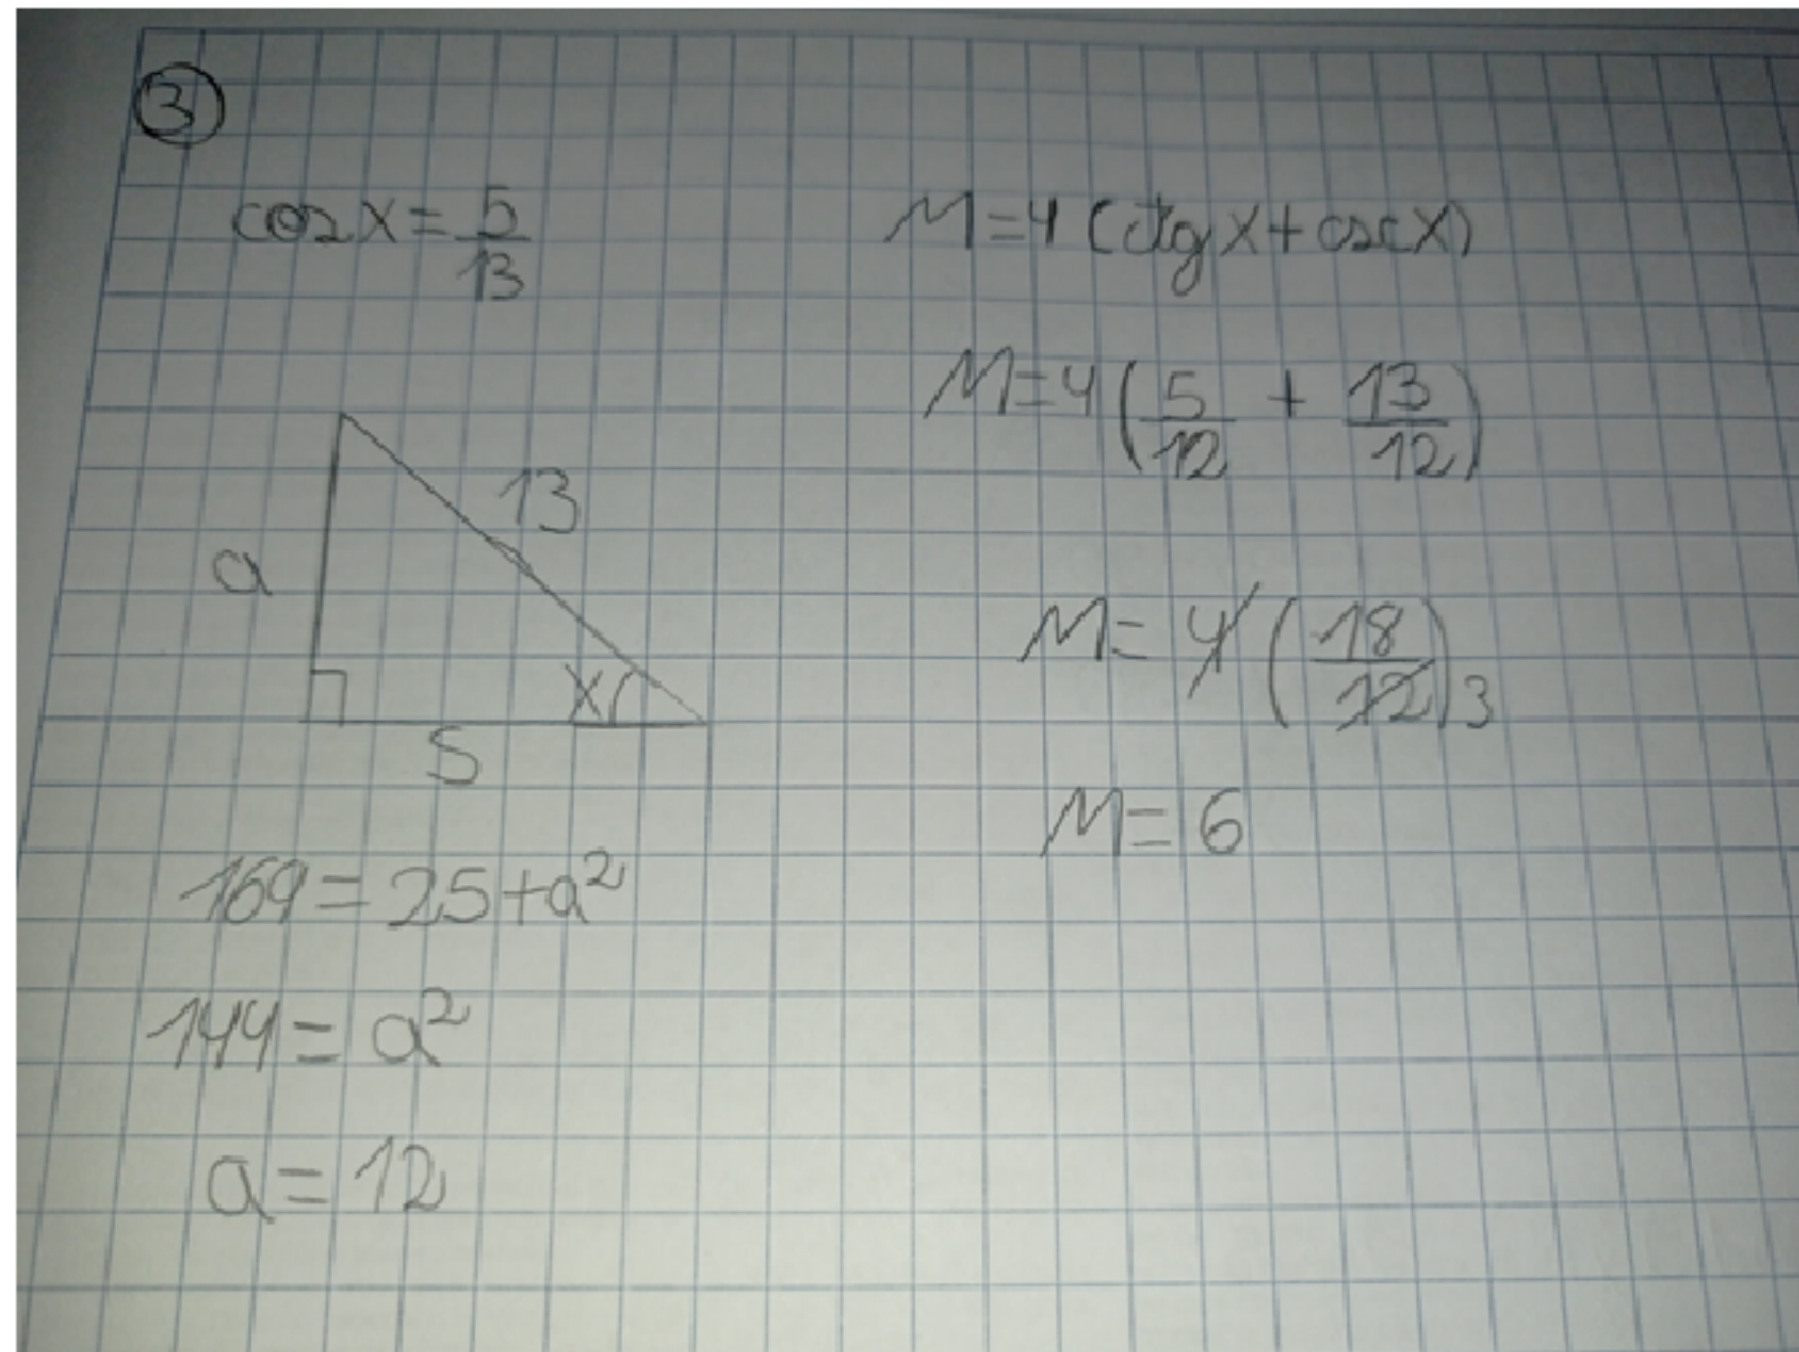 3
cos x = 5/13
13
a
x
5
169 = 25 + a²
144 = a²
a = 12
M = 4 (ctg x + csc x)
M = 4 (5/12 + 13/12)
M = 4 (18/12) 3
M = 6